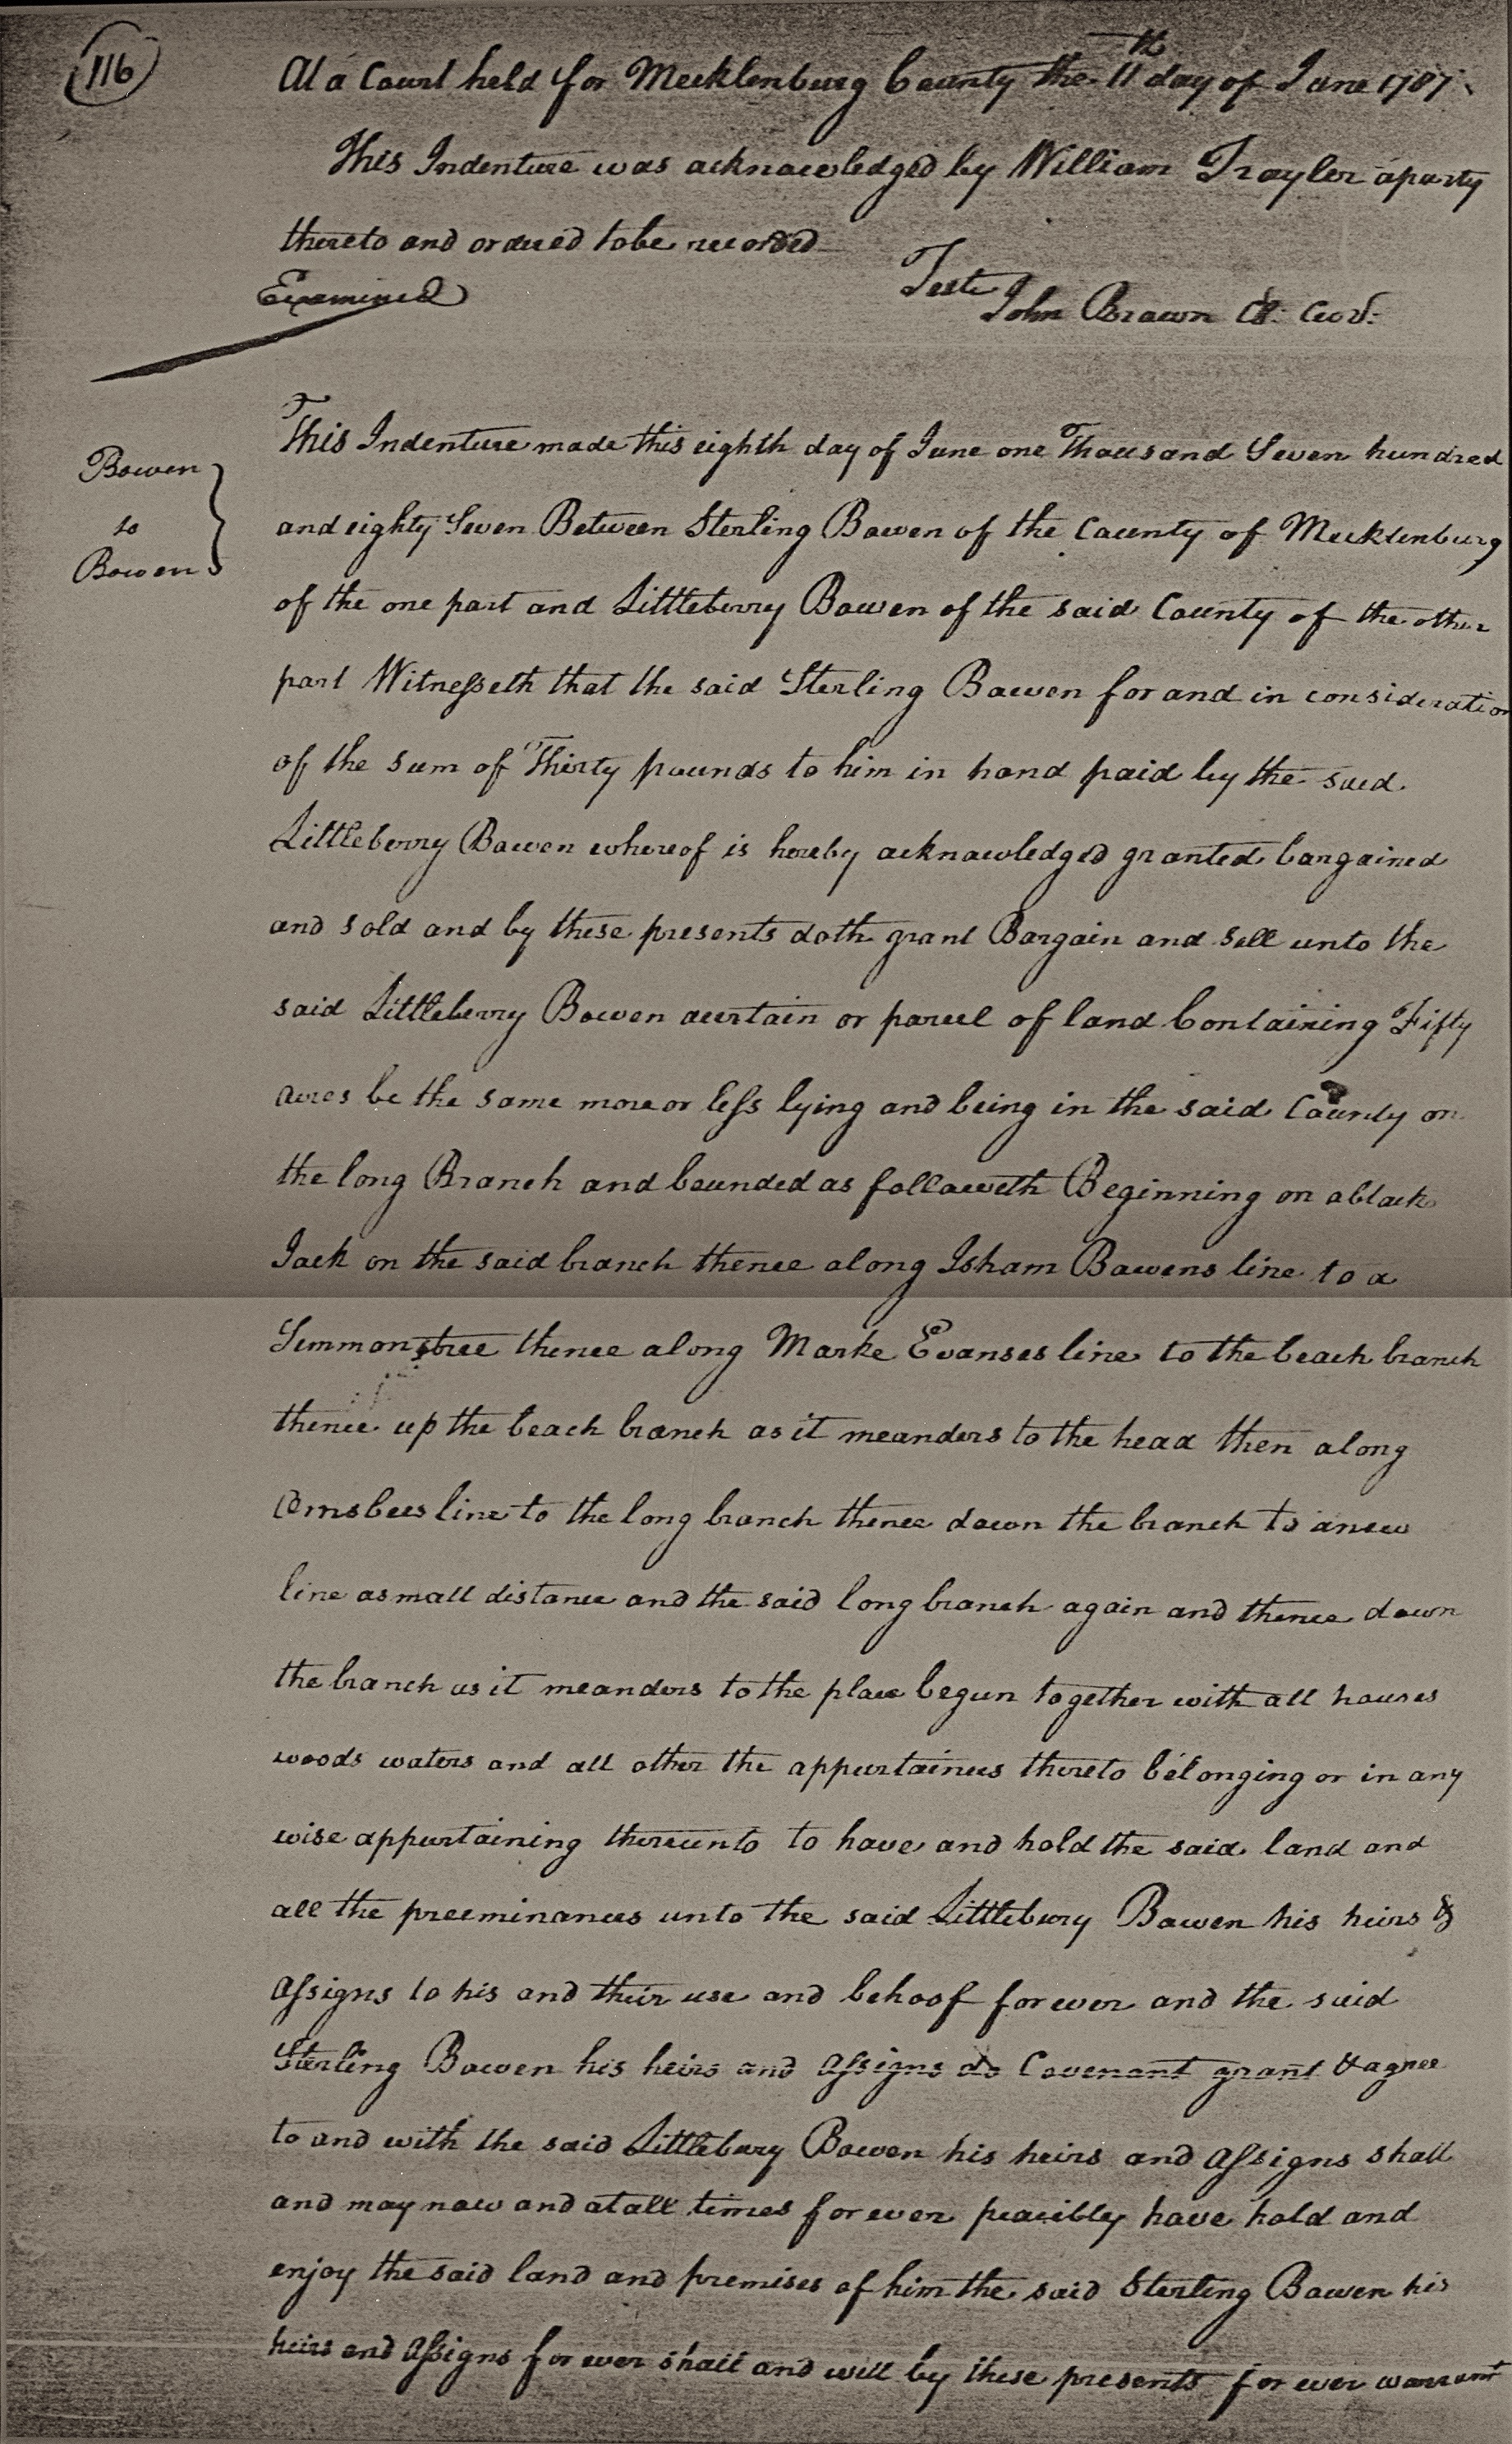 116
At a Court held for Mecklenburg County the 11th day of June 1787
This Indenture was acknowledged by William Traylor a party
thereto and ordered to be recorded
Examined
Teste
John Brown Cl: Curd:
Bowen
to
Bowen
This Indenture made this eighth day of June one Thousand Seven hundred
and eighty Seven Between Sterling Bowen of the County of Mecklenburg
of the one part and Littleberry Bowen of the said County of the other
part Witnesseth that the said Sterling Bowen for and in consideration
of the sum of Thirty pounds to him in hand paid by the said
Littleberry Bowen whereof is hereby acknowledged granted bargained
and sold and by these presents doth grant Bargain and sell unto the
said Littleberry Bowen a certain or parcel of land Containing Fifty
acres be the same more or less lying and being in the said County on
the long Branch and bounded as followeth Beginning on a black
Jack on the said branch thence along Isham Bowens line to a
Simmons tree thence along Marke Evanses line to the beach branch
thence up the beach branch as it meanders to the head then along
Ornsbees line to the long branch thence down the branch to a new
line a small distance and the said long branch again and thence down
the branch as it meanders to the place begun together with all houses
woods waters and all other the appurtainces thereto belonging or in any
wise appurtaining thereunto to have and hold the said land and
all the preeminances unto the said Littlebury Bowen his heirs &
assigns to his and their use and behoof for ever and the said
Sterling Bowen his heirs and assigns do Covenant grant & agree
to and with the said Littlebury Bowen his heirs and assigns shall
and may now and at all times for ever peacibly have hold and
enjoy the said land and premises of him the said Sterling Bowen his
heirs and assigns for ever shall and will by these presents for ever warrant